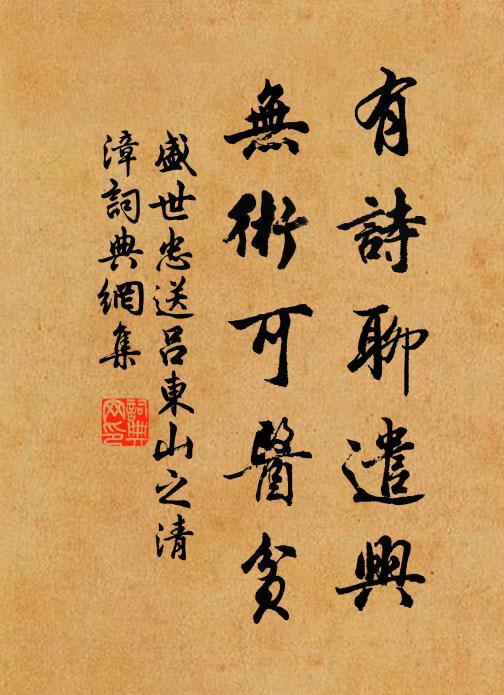 有詩聊遣興
無術可醫貧
盛世忠送呂東山之清
漳詞典網集
詞典网印